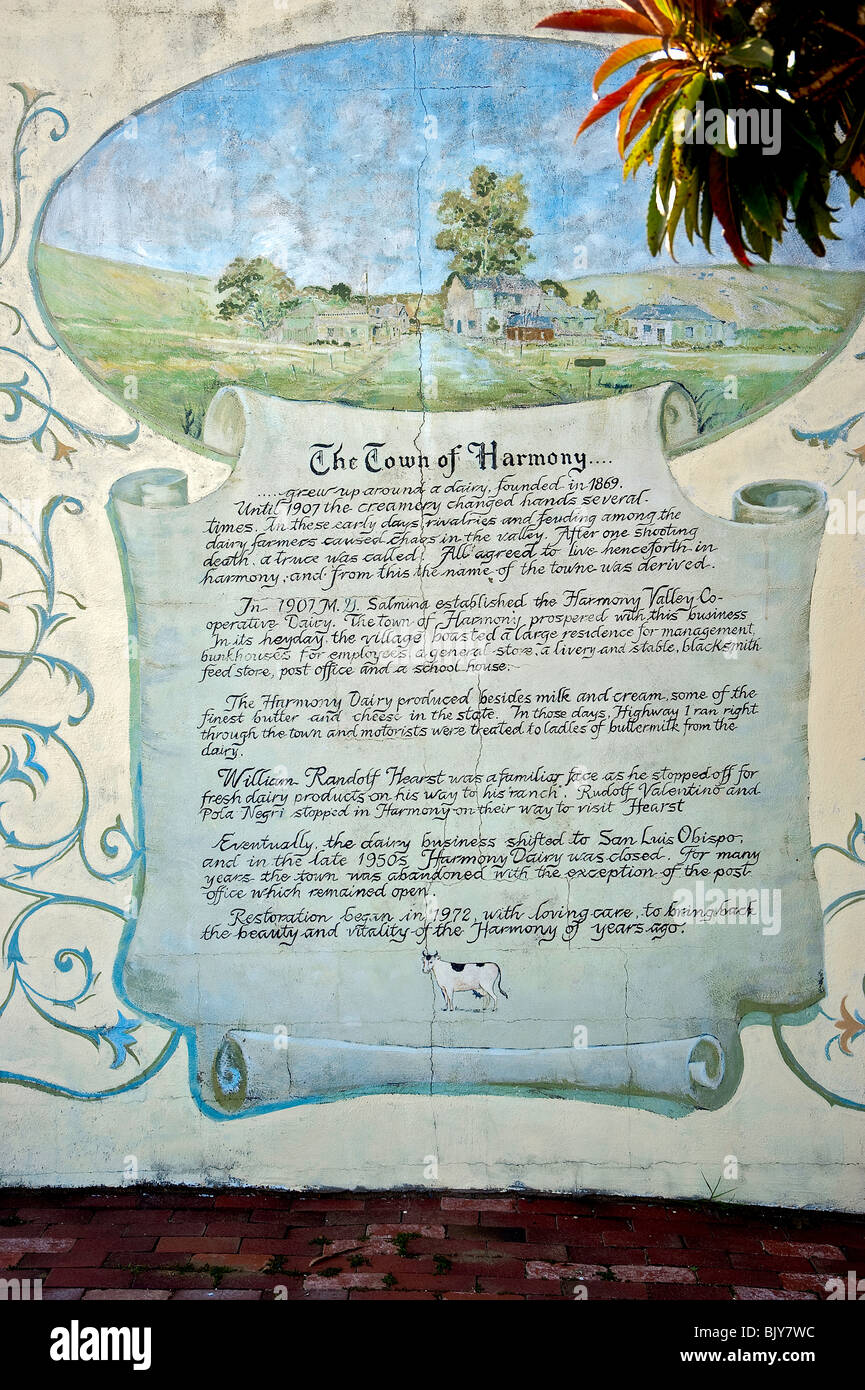 The Town of Harmony....
.....grew up around a dairy, founded in 1869.
Until 1907 the creamery changed hands several
times. In these early days, rivalries and feuding among the
dairy farmers caused chaos in the valley. After one shooting
death, a truce was called. All agreed to live henceforth in
harmony, and from this the name of the towne was derived.
In 1907 M. G. Salmina established the Harmony Valley Co-
operative Dairy. The town of Harmony prospered with this business
In its heyday the village boasted a large residence for management,
bunkhouses for employees, a general store, a livery and stable, blacksmith
feed store, post office and a school house.
The Harmony Dairy produced besides milk and cream, some of the
finest butter and cheese in the state. In those days, Highway 1 ran right
through the town and motorists were treated to ladles of buttermilk from the
dairy.
William Randolf Hearst was a familiar face as he stopped off for
fresh dairy products on his way to his 'ranch'. Rudolf Valentino and
Pola Negri stopped in Harmony on their way to visit Hearst
Eventually, the dairy business shifted to San Luis Obispo,
and in the late 1950s Harmony Dairy was closed. For many
years the town was abandoned with the exception of the post
office which remained open.
Restoration began in 1972, with loving care, to bring back
the beauty and vitality of the Harmony of years ago.
alamy
a
alamy
Image ID: BJY7WC
www.alamy.com